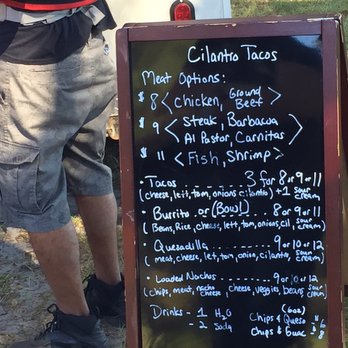 Cilantro Tacos
Meat Options:
$8 < Chicken, Ground Beef >
$9 < Steak, Barbacoa
Al Pastor, Carnitas >
$11 < Fish, Shrimp >
Tacos 3 for 8 or 9 or 11
(cheese, lett, tom, onions cilantro) +1 sour cream
• Burrito or (Bowl) .... 8 or 9 or 11
(Beans, Rice, cheese, lett, tom, onions, cil, sour cream)
• Quesadilla ........ 9 or 10 or 12
(meat, cheese, lett, tom, onio, cilantro, sour cream)
• Loaded Nachos ...... 9 or 10 or 12
(chips, meat, nacho cheese, cheese, veggies, beans, sour cream)
Drinks - 1 H2O
- 2 Soda
(6oz)
Chips & Queso 6
Chips & Guac 8